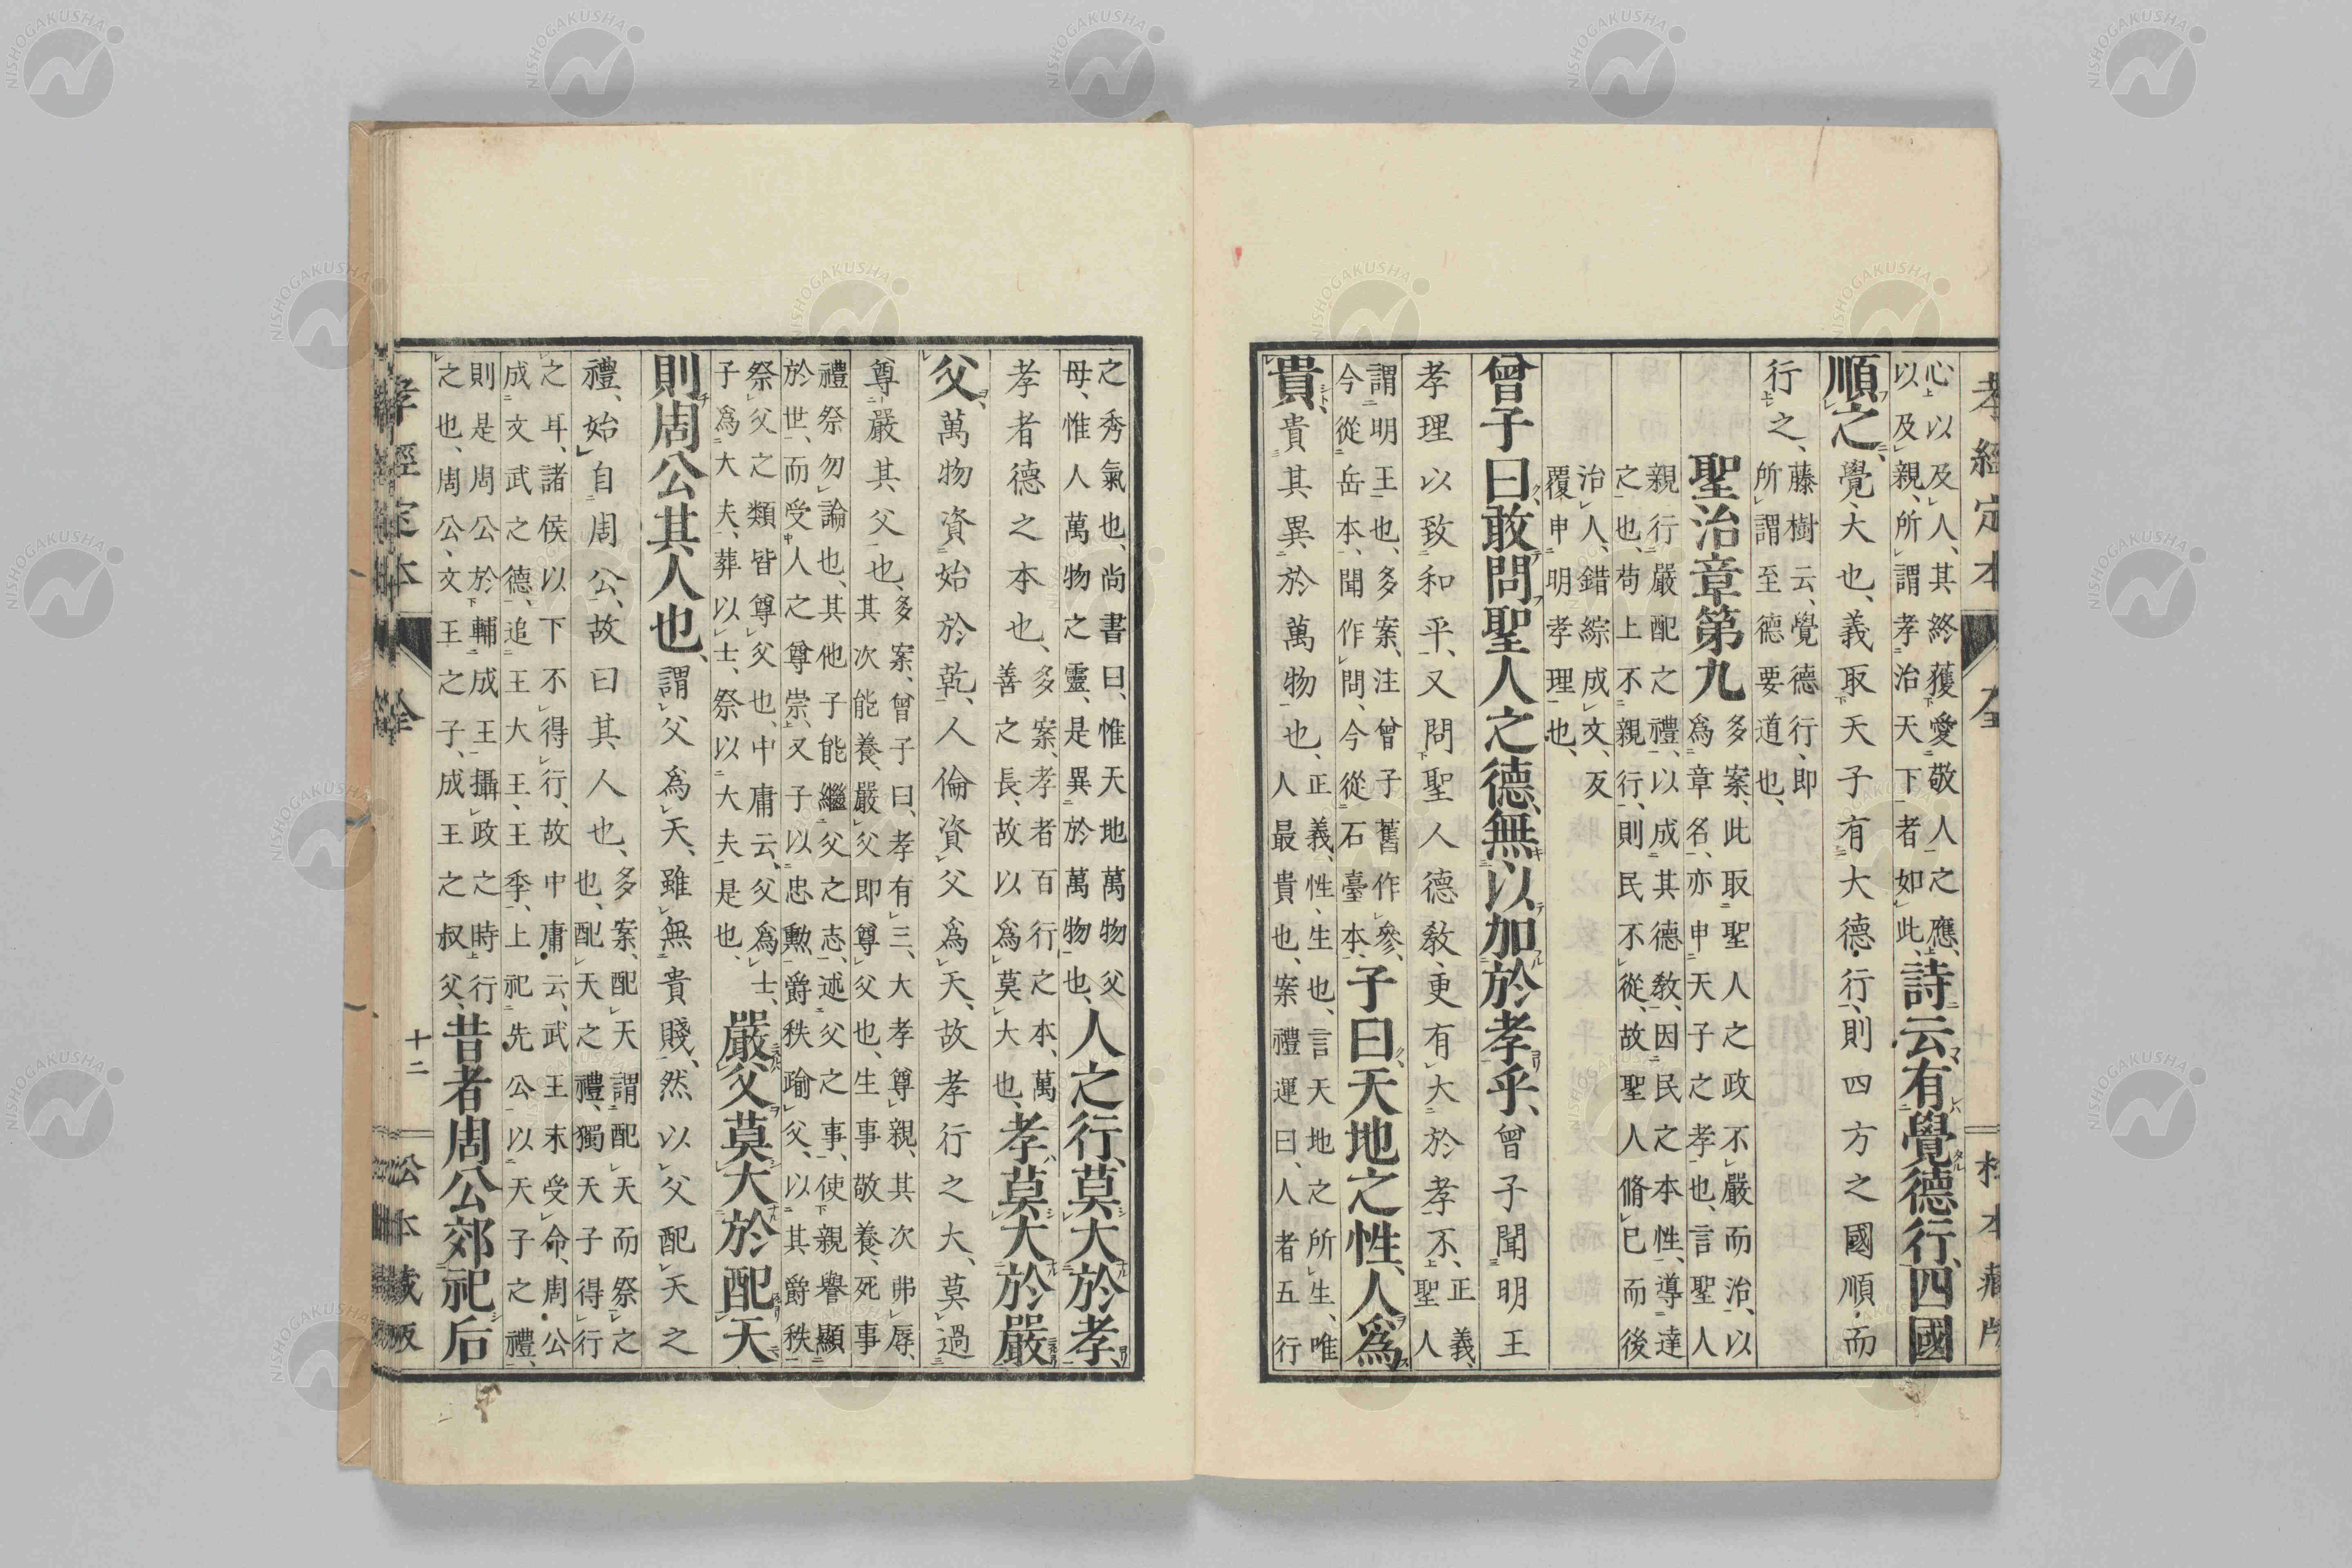 孝經定本 全 十一 松本藏版
心、以及人、其終獲愛敬人之應、
以及親、所謂孝治天下者如此、
詩云有覺德行、四國
順之、覺、大也、義取天子有大德行、則四方之國順而
行之、
藤樹云、覺德行、即
所謂至德要道也、
聖治章第九
多案、此取聖人之政不嚴而治、以
爲章名、亦申天子之孝也、言聖人
親行嚴配之禮、以成其德敎、因民之本性、導達
之也、苟上不親行、則民不從、故聖人脩已而後
治人、錯綜成文、反
覆申明孝理也、
曾子曰敢問聖人之德、無以加於孝乎、曾子聞明王
孝理以致和平、又問聖人德敎、更有大於孝不、
正義、
聖人
謂明王也、多案、注曾子舊作參、
今從岳本、聞作問、今從石臺本、
子曰天地之性、人爲
貴、貴其異於萬物也、
正義、性、生也、言天地之所生、唯
人最貴也、案禮運曰、人者五行
之秀氣也、尚書曰、惟天地萬物父
母、惟人萬物之靈、是異於萬物也、
人之行、莫大於孝、
孝者德之本也、
多案、孝者百行之本、萬
善之長、故以爲莫大也、
孝莫大於嚴
父、萬物資始於乾、人倫資父爲天、故孝行之大、莫過
尊嚴其父也、
多案、曾子曰、孝有三、大孝尊親、其次弗辱、
其次能養、嚴父即尊父也、生事敬養、死事
禮祭勿論也、其他子能繼父之志、述父之事、使親譽顯
於世、而受人之尊崇、又子以忠勲爵秩踰父、以其爵秩
祭父之類皆尊父也、中庸云、父爲士、
子爲大夫、葬以士、祭以大夫是也、
嚴父莫大於配天
則周公其人也、謂父爲天、雖無貴賤、然以父配天之
禮、始自周公、故曰其人也、
多案、配天謂配天而祭之
也、配天之禮、獨天子得行
之耳、諸侯以下不得行、故中庸云、武王末受命、周公
成文武之德、追王大王、王季、上祀先公以天子之禮、
則是周公於輔成王攝政之時行
之也、周公、文王之子、成王之叔父、
昔者周公郊祀后
孝經定本 全 十二 松本藏版
NISHOGAKUSHA